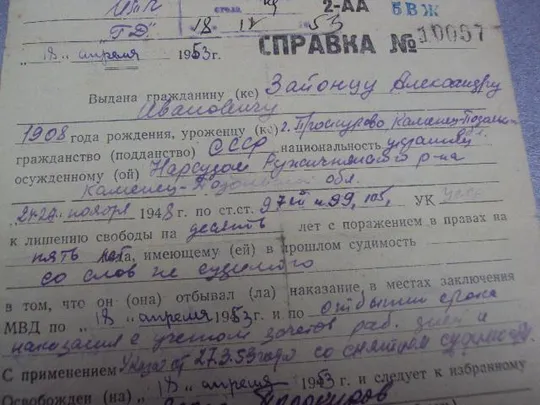 2-АА БВЖ
"ГД" 18 IV 53
"18" апреля 1953г. СПРАВКА № 10067
Выдана гражданину (ке) Зайонцу Александру
Ивановичу
1908 года рождения, уроженцу (ке) г. Проскурово, Каменец-Подольск
гражданство (подданство) СССР национальность украинец
осужденному (ой) Нарсудом Ружичнянского р-на
Каменец-Подольской обл.
ноября 1948 г. по ст.ст. 97 УК УССР
к лишению свободы на десять лет с поражением в правах на
пять лет, имеющему (ей) в прошлом судимость
со слов не судимого
в том, что он (она) отбывал (ла) наказание, в местах заключения
МВД по "18" апреля 1953 г. и по отбытии срока
наказания с учетом зачетов раб. дней и
С применением Указа от 27.3.53 года со снятием судимости
Освобожден (на) "18" апреля 1953 г. и следует к избранному